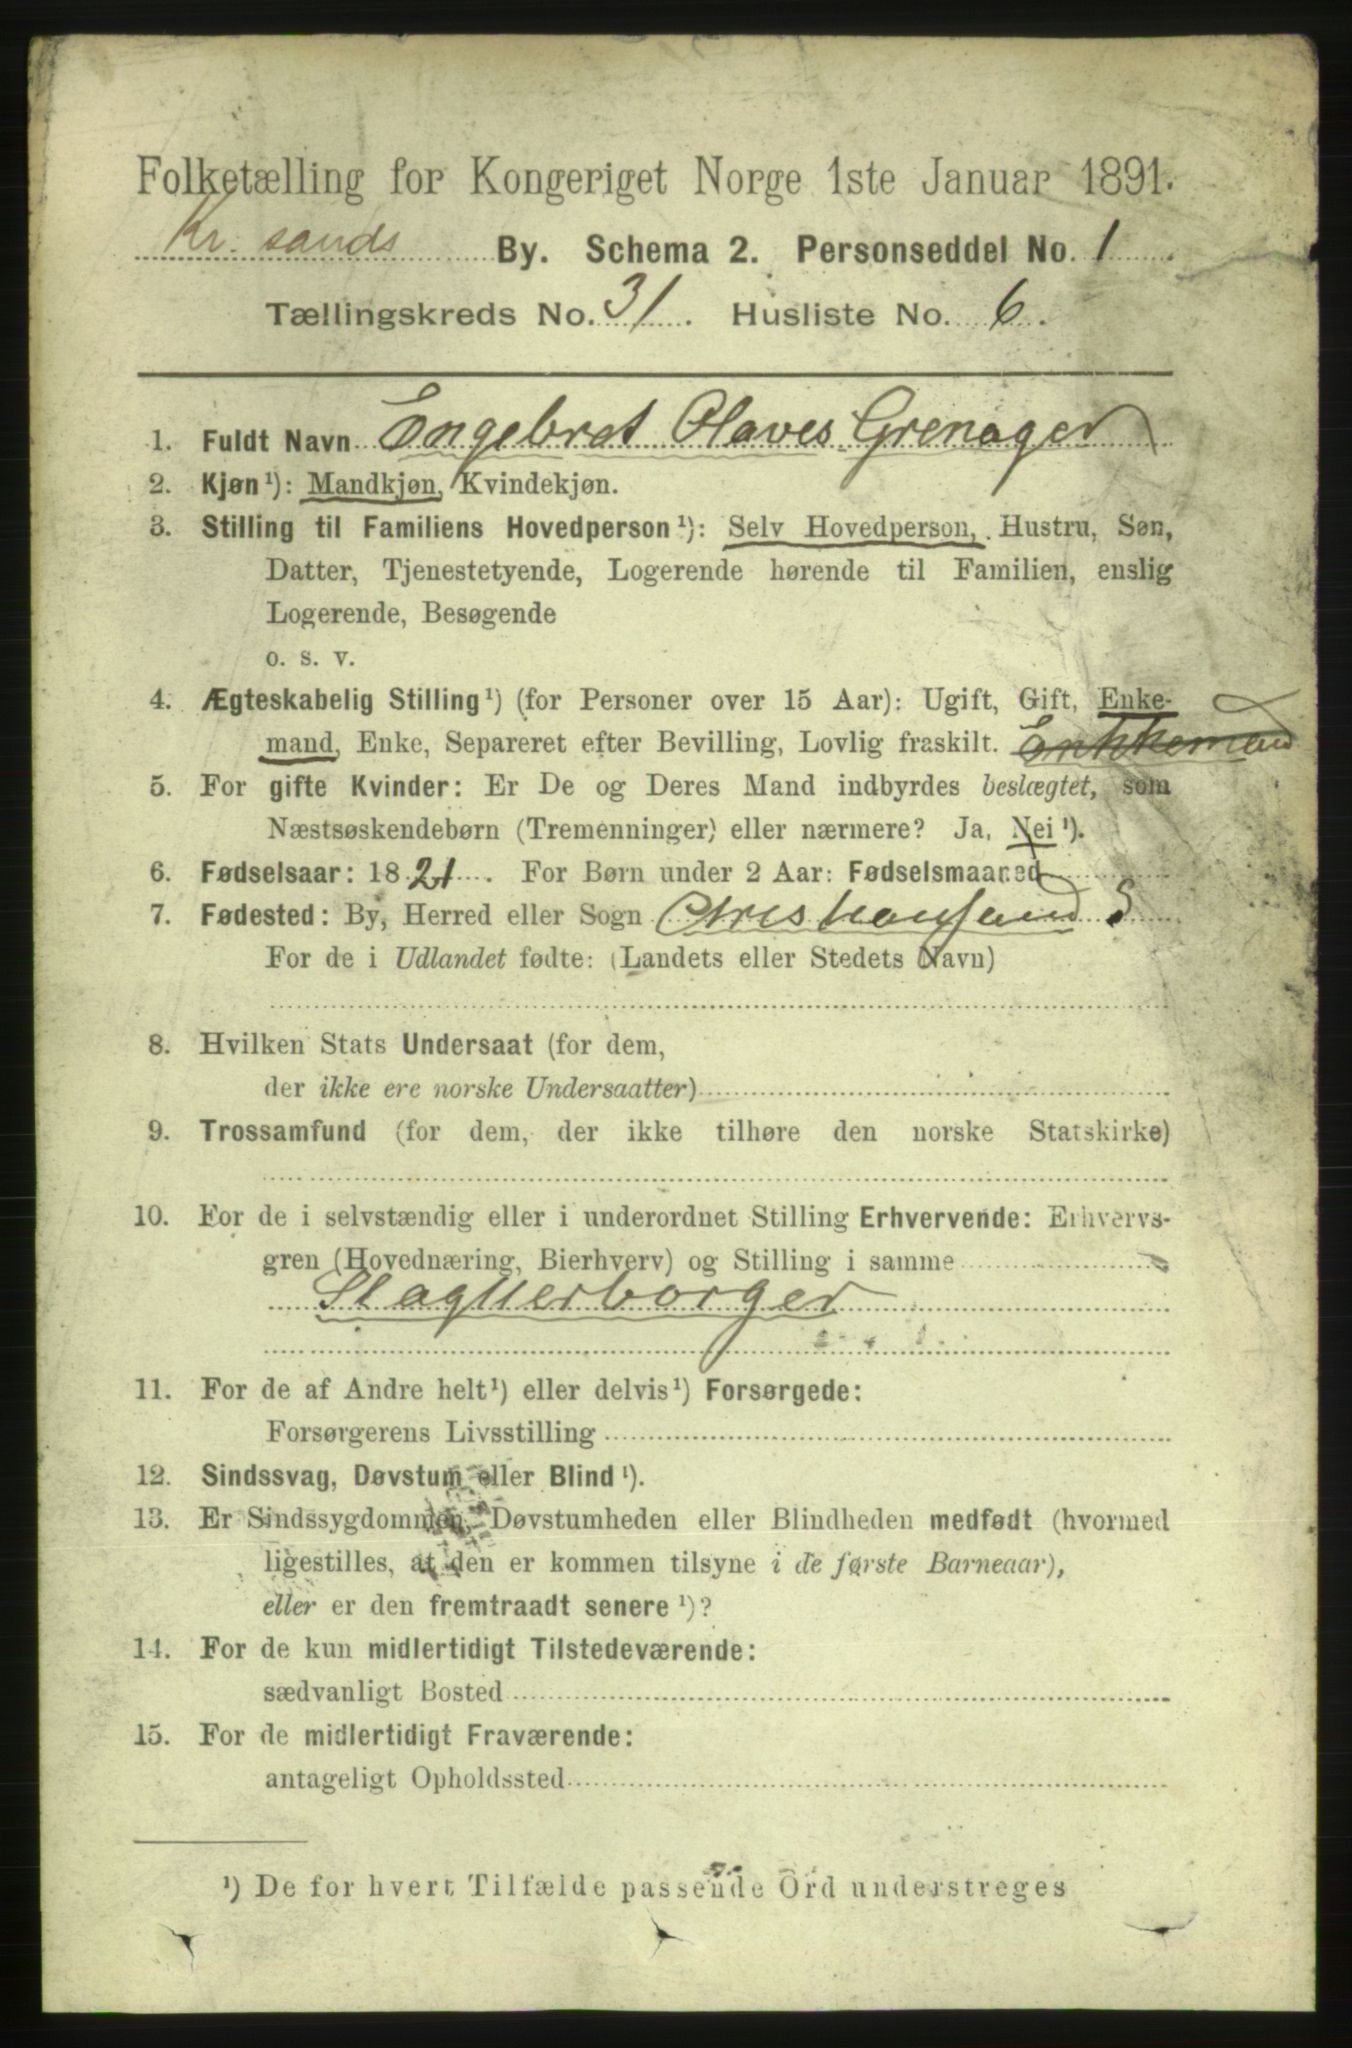 Folketælling for Kongeriget Norge 1ste Januar 1891.
Kr. sands By. Schema 2. Personseddel No. 1
Tællingskreds No. 31. Husliste No. 6.
1. Fuldt Navn Engebret Olaves Grenager
2. Kjøn¹): Mandkjøn, Kvindekjøn.
3. Stilling til Familiens Hovedperson¹): Selv Hovedperson, Hustru, Søn,
Datter, Tjenestetyende, Logerende hørende til Familien, enslig
Logerende, Besøgende
o. s. v.
4. Ægteskabelig Stilling¹) (for Personer over 15 Aar): Ugift, Gift, Enke-
mand, Enke, Separeret efter Bevilling, Lovlig fraskilt. Enkkemand
5. For gifte Kvinder: Er De og Deres Mand indbyrdes beslægtet, som
Næstsøskendebørn (Tremenninger) eller nærmere? Ja, Nei¹).
6. Fødselsaar: 1821. For Børn under 2 Aar: Fødselsmaaned
7. Fødested: By, Herred eller Sogn Christiansand S
For de i Udlandet fødte: (Landets eller Stedets Navn)
8. Hvilken Stats Undersaat (for dem,
der ikke ere norske Undersaatter)
9. Trossamfund (for dem, der ikke tilhøre den norske Statskirke)
10. For de i selvstændig eller i underordnet Stilling Erhvervende: Erhvervs-
gren (Hovednæring, Bierhverv) og Stilling i samme
Slagterborger
11. For de af Andre helt¹) eller delvis¹) Forsørgede:
Forsørgerens Livsstilling
12. Sindssvag, Døvstum eller Blind¹).
13. Er Sindssygdommen, Døvstumheden eller Blindheden medfødt (hvormed
ligestilles, at den er kommen tilsyne i de første Barneaar),
eller er den fremtraadt senere¹)?
14. For de kun midlertidigt Tilstedeværende:
sædvanligt Bosted
15. For de midlertidigt Fraværende:
antageligt Opholdssted
¹) De for hvert Tilfælde passende Ord understreges